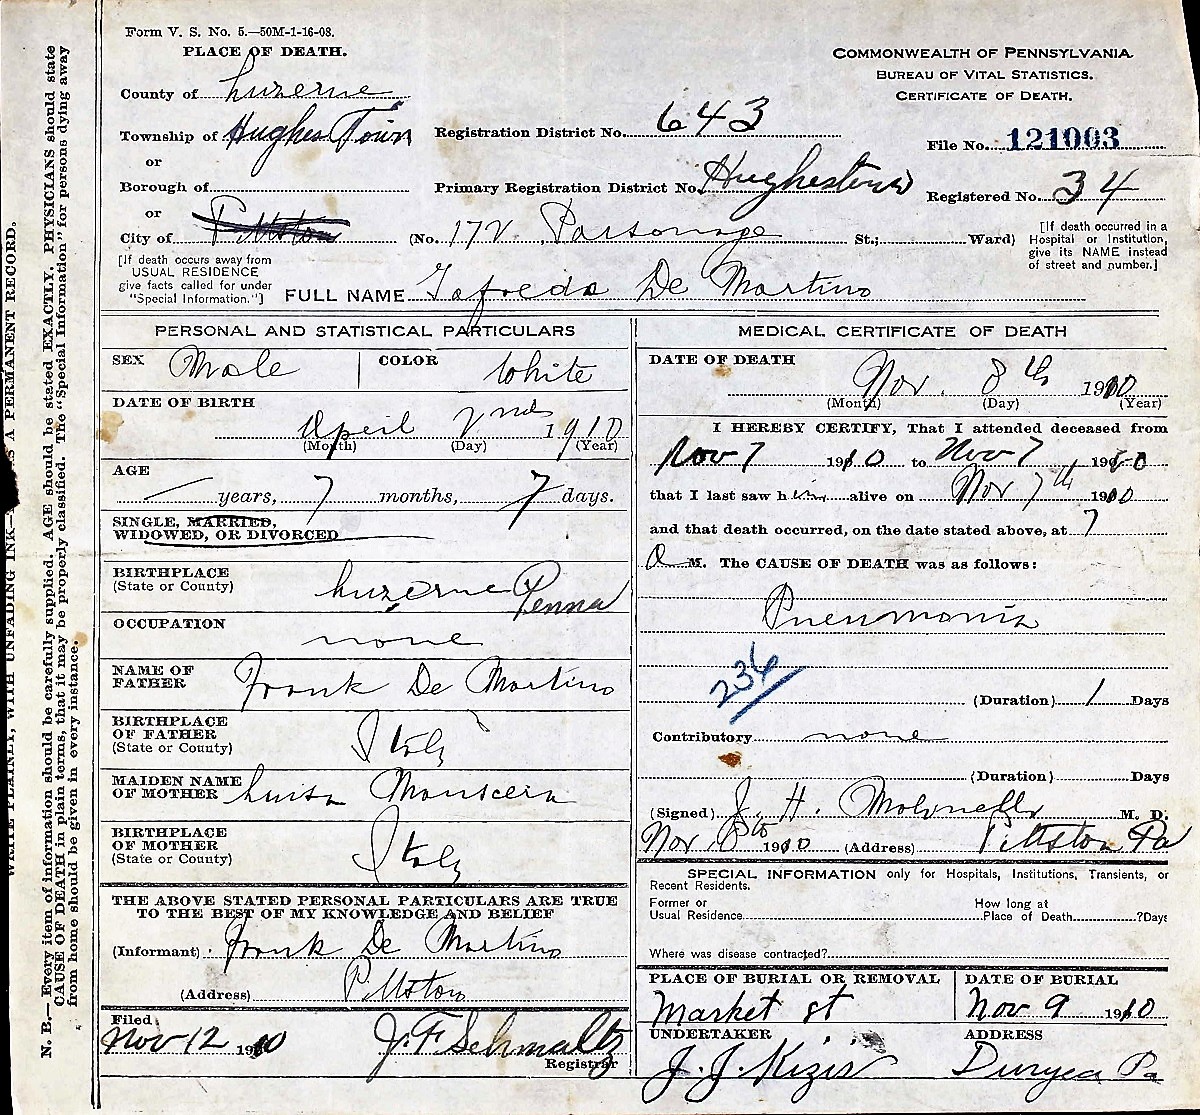 Form V. S. No. 5.—50M-1-16-08.
PLACE OF DEATH.
COMMONWEALTH OF PENNSYLVANIA.
BUREAU OF VITAL STATISTICS.
CERTIFICATE OF DEATH.
County of Luzerne
Township of Hughes Town
Registration District No. 643
File No. 121003
or
Borough of
Primary Registration District No. Hughestown
Registered No. 34
or
City of Pittston (No. 172 Parsonage St.; Ward)
[If death occurred in a
Hospital or Institution,
give its NAME instead
of street and number.]
[If death occurs away from
USUAL RESIDENCE
give facts called for under
"Special Information."]
FULL NAME Tofredo De Martino
PERSONAL AND STATISTICAL PARTICULARS
SEX Male COLOR White
DATE OF BIRTH
April 2nd 1910
(Month) (Day) (Year)
AGE
— years, 7 months, 7 days.
SINGLE, MARRIED,
WIDOWED, OR DIVORCED
BIRTHPLACE
(State or County) Luzerne Penna
OCCUPATION
none
NAME OF
FATHER Frank De Martino
BIRTHPLACE
OF FATHER
(State or County) Italy
MAIDEN NAME
OF MOTHER Luisa
BIRTHPLACE
OF MOTHER
(State or County) Italy
THE ABOVE STATED PERSONAL PARTICULARS ARE TRUE
TO THE BEST OF MY KNOWLEDGE AND BELIEF
(Informant) Frank De Martino
(Address) Pittston
Filed
Nov 12 1910 J. F. Schmaltz
Registrar
MEDICAL CERTIFICATE OF DEATH
DATE OF DEATH
Nov. 8th 1910
(Month) (Day) (Year)
I HEREBY CERTIFY, That I attended deceased from
Nov 7 1910 to Nov 7 1910
that I last saw him alive on Nov 7th 1910
and that death occurred, on the date stated above, at 7
a M. The CAUSE OF DEATH was as follows:
Pneumonia
236
(Duration) 1 Days
Contributory none
(Duration) Days
(Signed) J. H. M. D.
Nov 8th 1910 (Address) Pittston Pa
SPECIAL INFORMATION only for Hospitals, Institutions, Transients, or
Recent Residents.
Former or
Usual Residence
How long at
Place of Death ?Days
Where was disease contracted?
PLACE OF BURIAL OR REMOVAL
Market St
DATE OF BURIAL
Nov 9 1910
UNDERTAKER
J. J. Kizis
ADDRESS
Duryea Pa
WRITE PLAINLY, WITH UNFADING INK— A PERMANENT RECORD.
N. B.—Every item of information should be carefully supplied. AGE should be stated EXACTLY. PHYSICIANS should state
CAUSE OF DEATH in plain terms, that it may be properly classified. The "Special Information" for persons dying away
from home should be given in every instance.